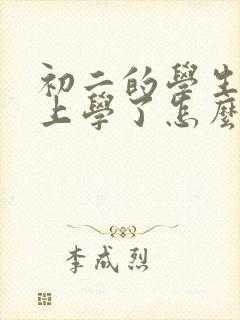 初二的學生
上學了怎麼
李成烈